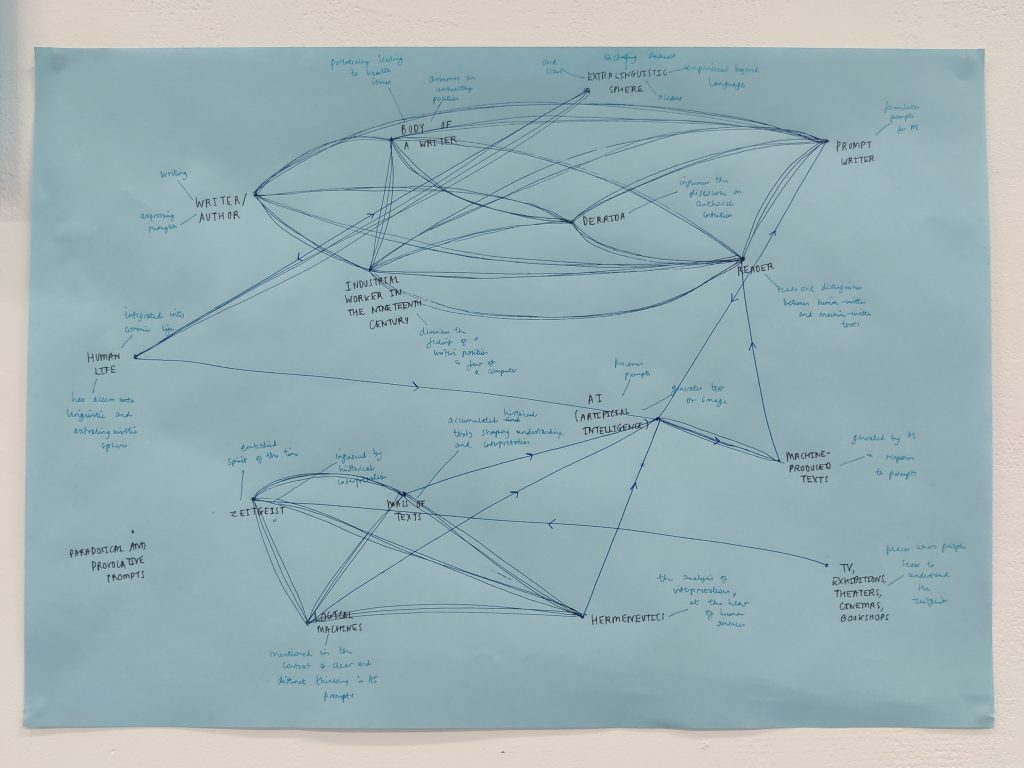 potentially leading
to health
issues
assumes an
unhealthy
position
BODY OF
A WRITER
and
including
EXTRALINGUISTIC
SPHERE
experiences beyond
language
oceans
formulates
prompts
for AI
PROMPT
WRITER
writing
expressing
thoughts
WRITER/
AUTHOR
DERRIDA
influences the
discussion on
authorial
intention
READER
between human-written
and machine-written
texts
INDUSTRIAL
WORKER IN
THE NINETEENTH
CENTURY
describes the
feeling of a
position
in front of
a computer
integrated into
cosmic life
HUMAN
LIFE
has access to
linguistic and
extralinguistic
sphere
processes
prompts
generates text
or image
AI
(ARTIFICIAL
INTELLIGENCE)
MACHINE-
PRODUCED
TEXTS
generated by AI
in response
to prompts
accumulated historical
texts shaping understanding
and interpretation
MASS OF
TEXTS
embodied
spirit of the time
influenced by
historical
interpretation
ZEITGEIST
PARADOXICAL AND
PROVOCATIVE
PROMPTS
LOGICAL
MACHINES
mentioned in the
context of clear and
distinct thinking in AI
prompts
HERMENEUTICS
the analysis of
interpretations,
at the heart
of human
sciences
TV,
EXHIBITIONS,
THEATERS,
CINEMAS,
BOOKSHOPS
places where people
seek to
understand
the
zeitgeist